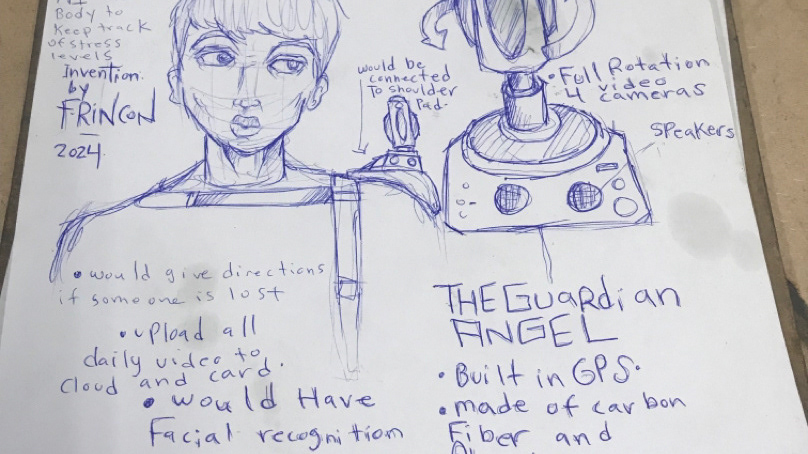 Body to
Keep track
of stress
levels
Invention
by
FRINCON
2024
would be
connected
To shoulder
Pad
• Full Rotation
video
4 cameras
SPeakers
• would give directions
if someone is lost
• upload all
daily video to
cloud and card.
• would Have
Facial recognition
THE GuaRdian
ANGEL
• Built in GPS.
• made of carbon
Fiber and